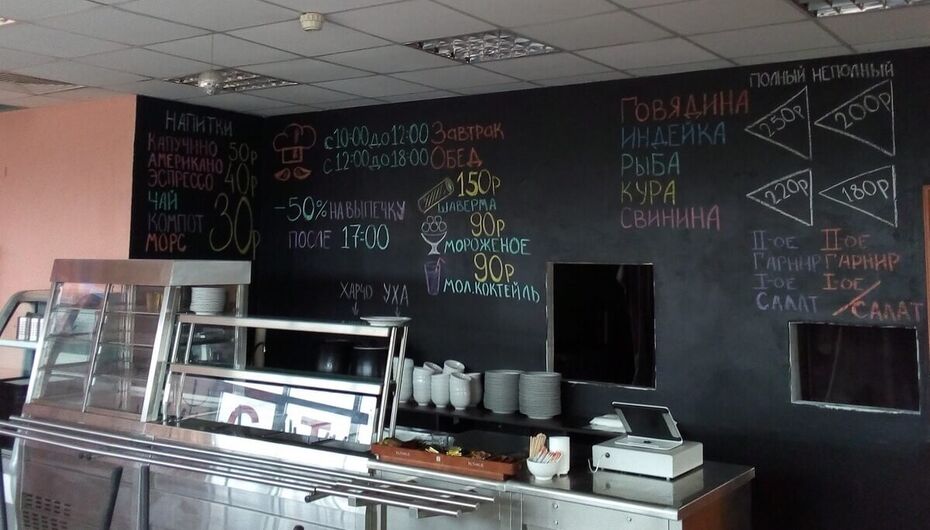 НАПИТКИ
КАПУЧИНО 50Р
АМЕРИКАНО
ЭСПРЕССО 40Р
ЧАЙ
КОМПОТ 30Р
МОРС
с 10-00 до 12:00 Завтрак
с 12:00 до 18:00 Обед
-50% НА ВЫПЕЧКУ
ПОСЛЕ 17-00
150р
ШАВЕРМА
90р
МОРОЖЕНОЕ
90р
МОЛ.КОКТЕЙЛЬ
ХАРЧО УХА
ГОВЯДИНА
ИНДЕЙКА
РЫБА
КУРА
СВИНИНА
ПОЛНЫЙ НЕПОЛНЫЙ
250р 200р
220р 180р
II-ое II-ое
ГАРНИР ГАРНИР
I-ое I-ое
САЛАТ /САЛАТ